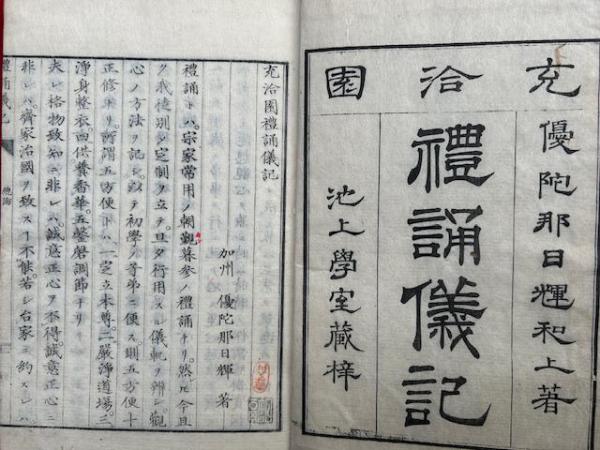 充洽園
優陀那日輝和上著
禮誦儀記
池上學室藏梓
充洽園禮誦儀記
加州 優陀那日輝 著
禮誦トハ。宗家常用ノ朝觀暮參ノ禮誦ナリ。然レ𪜈今且
ク我徒別シテ定制ヲ立テ。旦夕行用スル儀軌ヲ辨シ。觀
心ノ方法ヲ記シ。以テ初學ノ等弟ニ便ス。則五方便十
正修ナリ。所謂五方便トハ。一定立本尊。二嚴淨道場。三
淨身整衣。四供養香華。五磬調節ナリ。
夫レ格物致知ニ非レハ。誠意正心ヲ不得。誠意正心ニ
非レハ。齊家治國ヲ致スヿ不能。若シ台家ニ約スレハ
禮誦儀記 總論